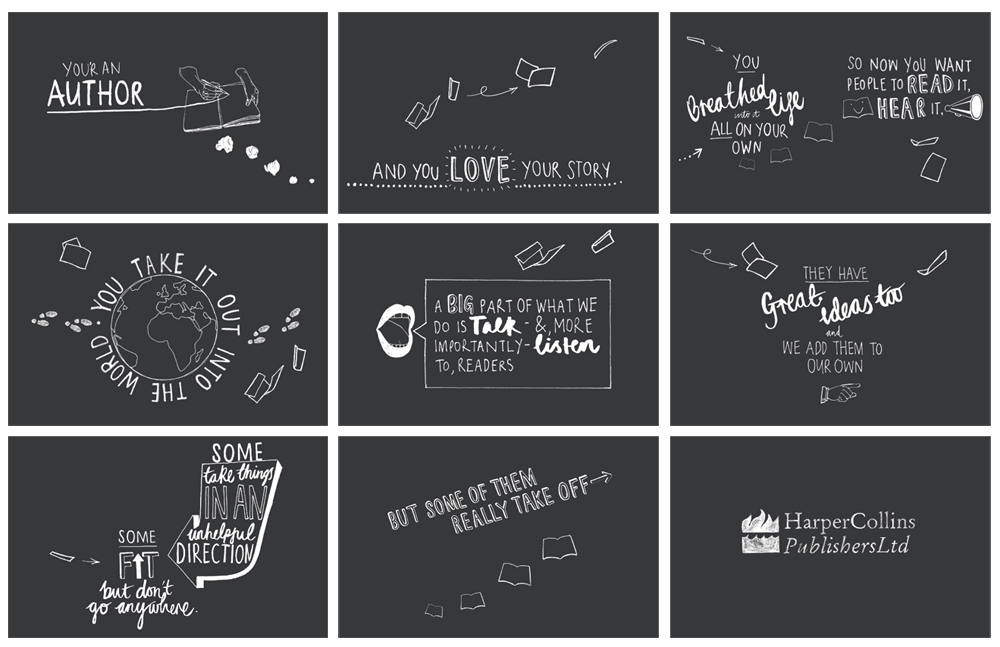 YOU'R AN
AUTHOR
AND YOU LOVE YOUR STORY
YOU
Breathed life
into it
ALL ON YOUR
OWN
SO NOW YOU WANT
PEOPLE TO READ IT,
HEAR IT.
YOU TAKE IT OUT INTO THE WORLD
A BIG PART OF WHAT WE
DO IS Talk - &, MORE
IMPORTANTLY - listen
TO, READERS
THEY HAVE
Great ideas too
and
WE ADD THEM TO
OUR OWN
SOME
take things
IN AN
unhelpful
DIRECTION
SOME
FIT
but don't
go anywhere.
BUT SOME OF THEM
REALLY TAKE OFF
HarperCollins
PublishersLtd